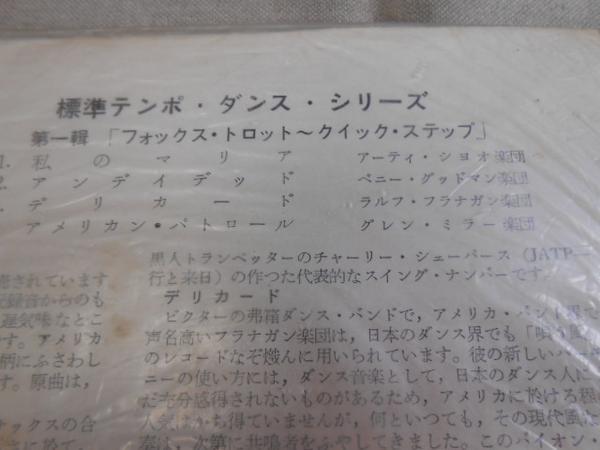 標準テンポ・ダンス・シリーズ
第一輯 「フォックス・トロット～クイック・ステップ」
1. 私のマリア アーティ・シヨオ楽団
2. アンデイデッド ベニー・グッドマン楽団
デリカード ラルフ・フラナガン楽団
アメリカン・パトロール グレン・ミラー楽団
黒人トランペッターのチャーリー・シェーバース（JATP一
行と来日）の作つた代表的なスイング・ナンバーです。
デリカード
ビクターの専属ダンス・バンドで，アメリカ・バンド界で
声名高いフラナガン楽団は，日本のダンス界でも「
のレコードなぞ熾んに用いられています。彼の新しい
ニーの使い方には，ダンス音楽として，日本のダンス人に
だ充分感得されないものがあるため，アメリカに於ける程
人気はかち得ていませんが，何といつても，その現代風な
奏は，次第に共鳴者をふやしてきました。このバイオン・
売されています
録音からのも
遅気味なとこ
す。アメリカ
柄にふさわし
す。原曲は，
ックスの合